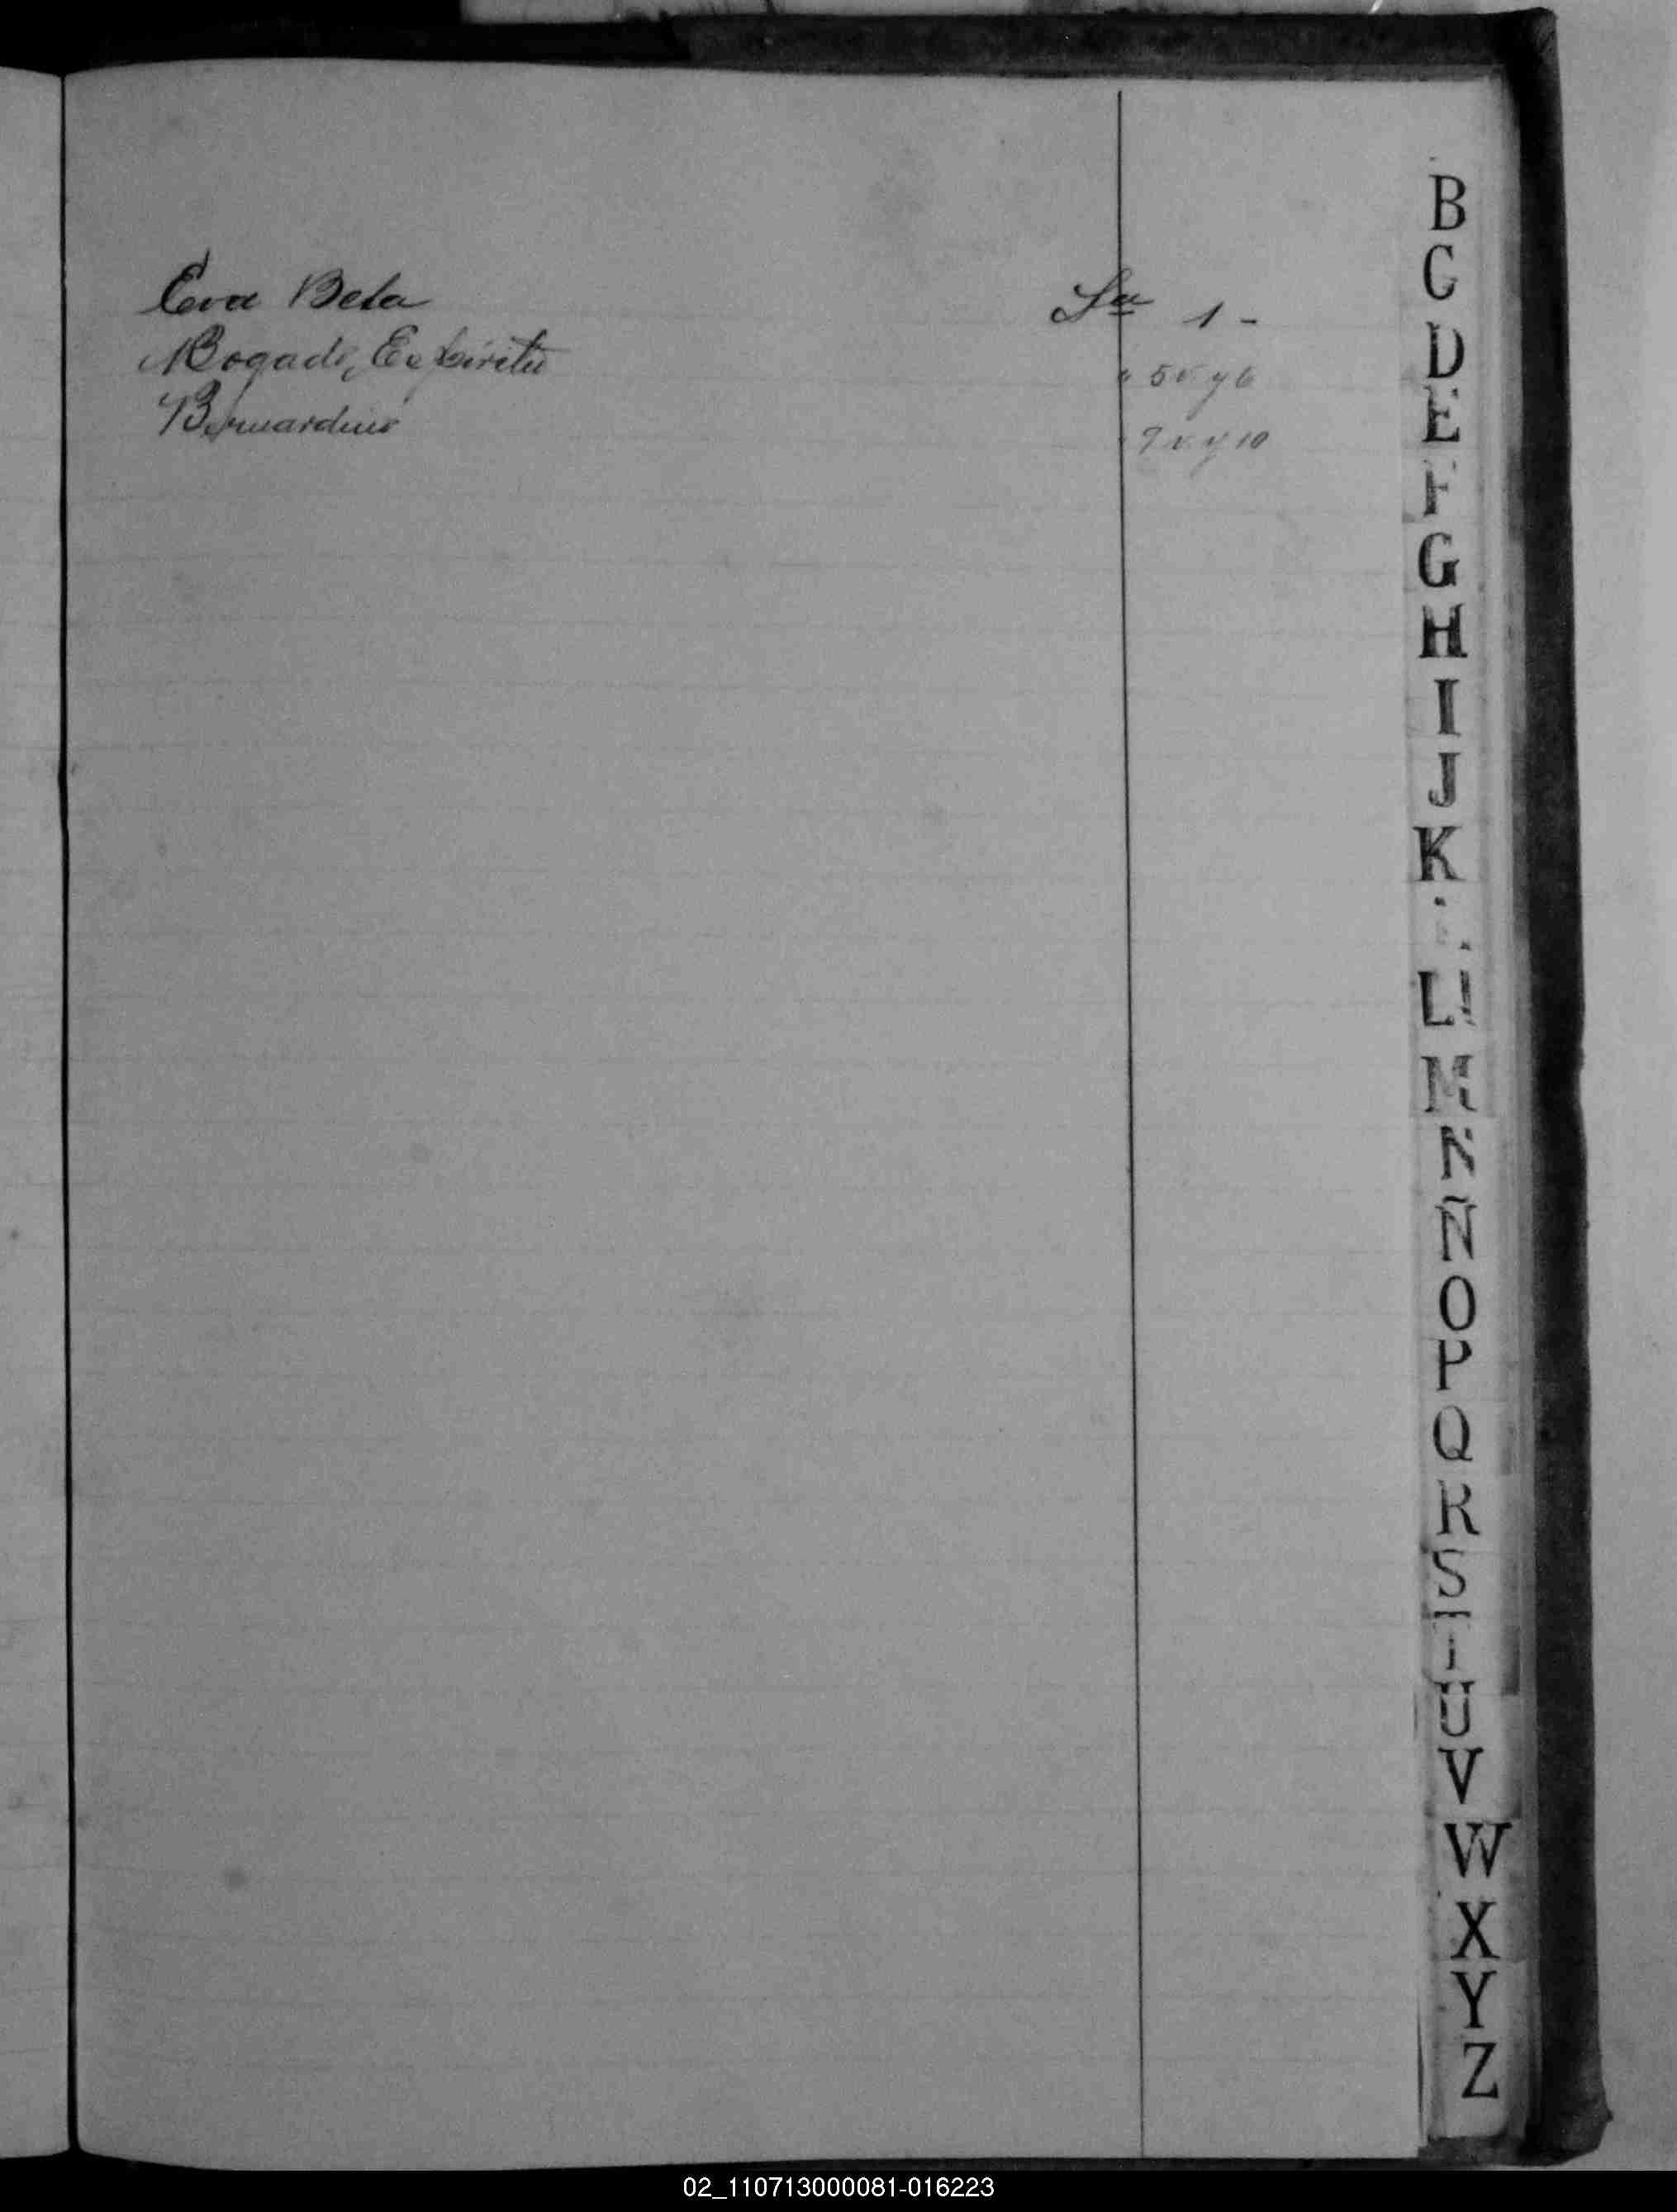 Eva Beta 1 -
Bogado, Espiritu " 5 v. y 6
Bernardino " 9 v. y 10
B
C
D
E
F
G
H
I
J
K
L
M
N
Ñ
O
P
Q
R
S
T
U
V
W
X
Y
Z
02_110713000081-016223